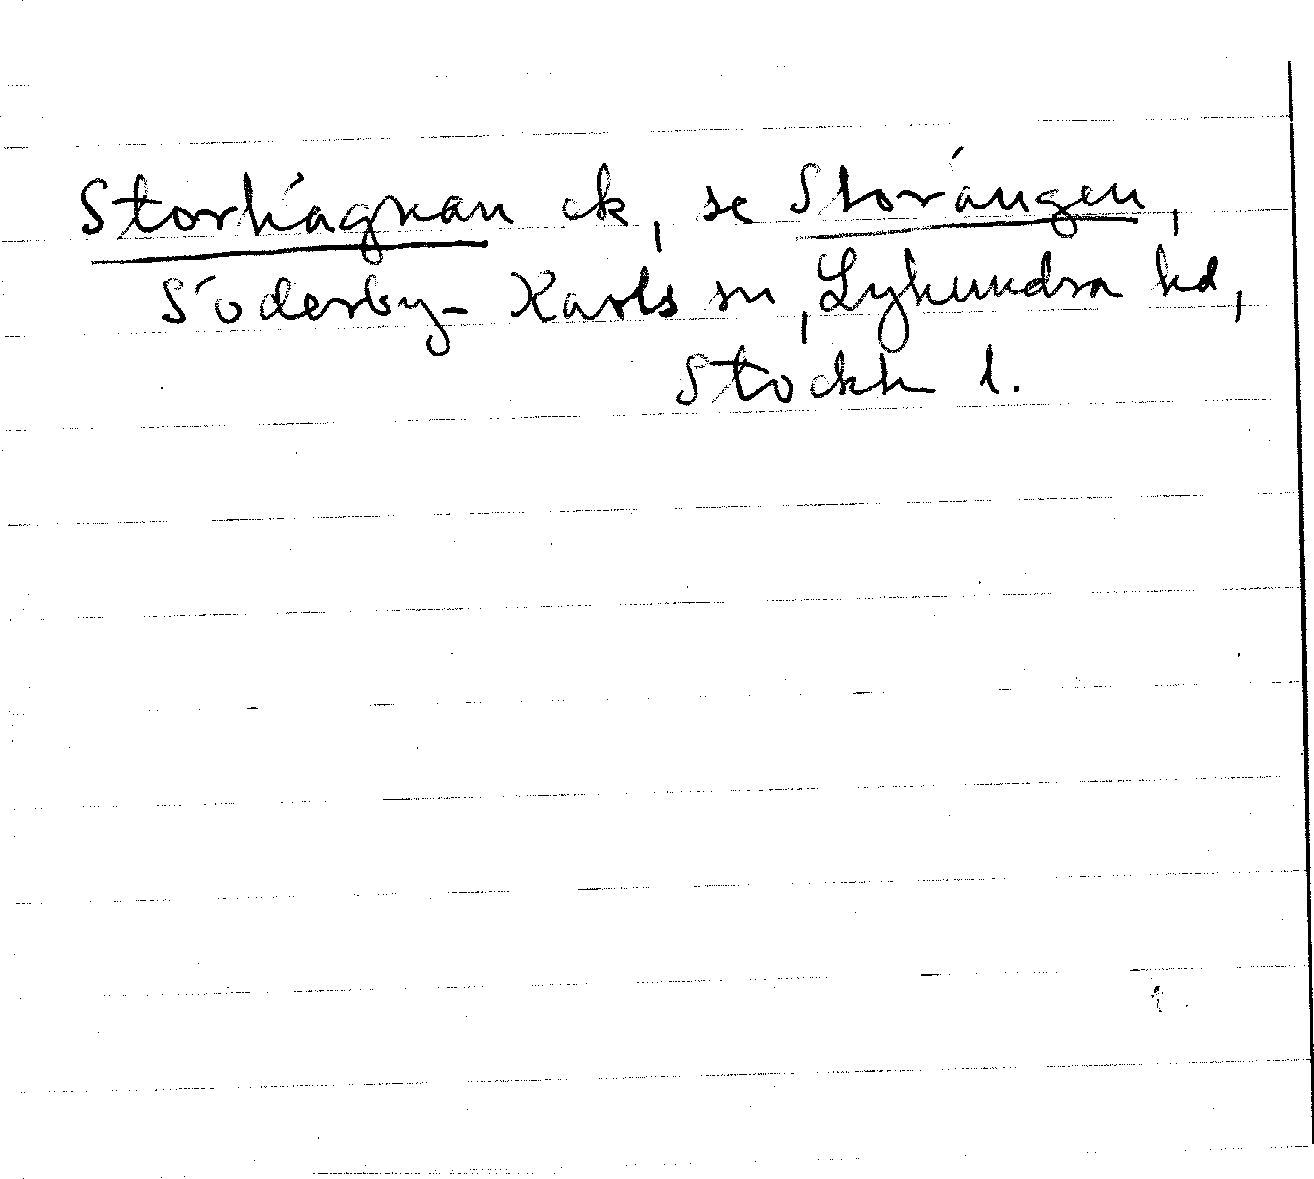 Storhägnan ek, se Storängen,
Söderby-Karls sn, Lyhundra hd,
Stockh l.